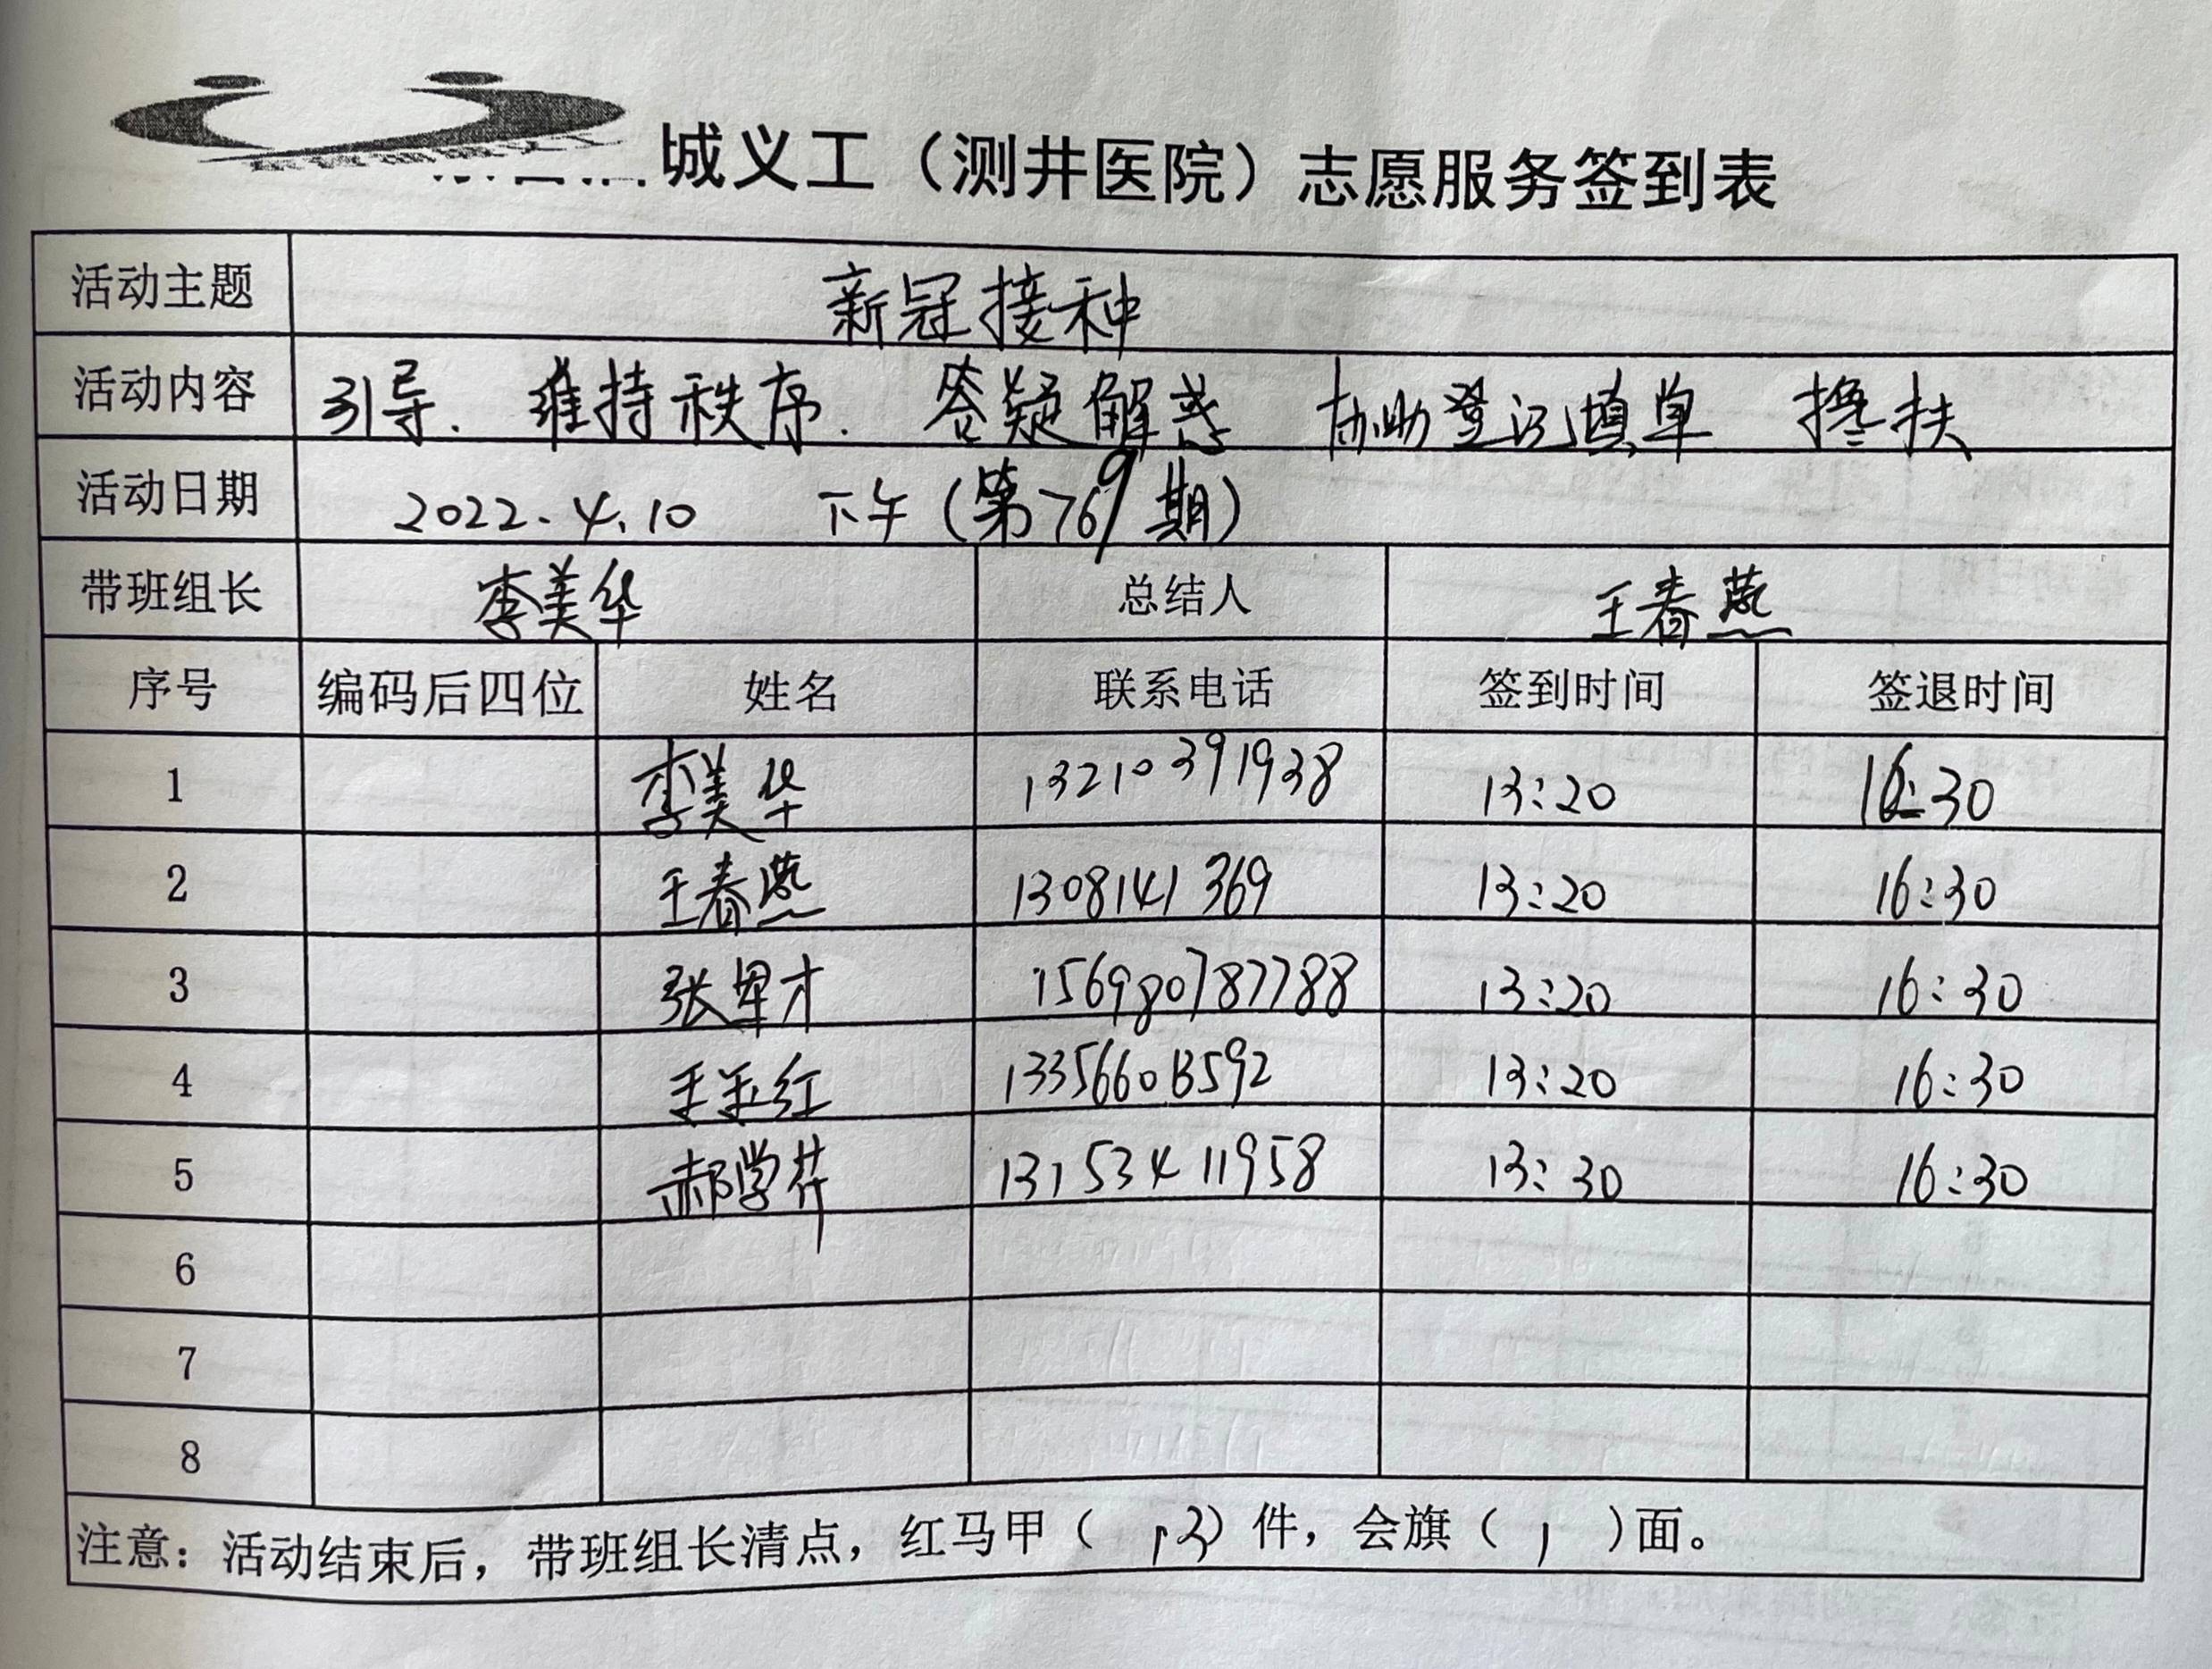 城义工（测井医院）志愿服务签到表
活动主题 新冠接种
活动内容 引导. 维持秩序. 答疑解惑 协助登记填单 搀扶
活动日期 2022.4.10 下午(第769期)
带班组长 李美华 总结人 王春燕
序号 编码后四位 姓名 联系电话 签到时间 签退时间
1 李美华 13210391938 13:20 16:30
2 王春燕 1308141369 13:20 16:30
3 张军才 156980787788 13:20 16:30
4 王玉红 13356603592 13:20 16:30
5 郝学芹 13153411958 13:30 16:30
6
7
8
注意：活动结束后，带班组长清点，红马甲（13）件，会旗（1）面。